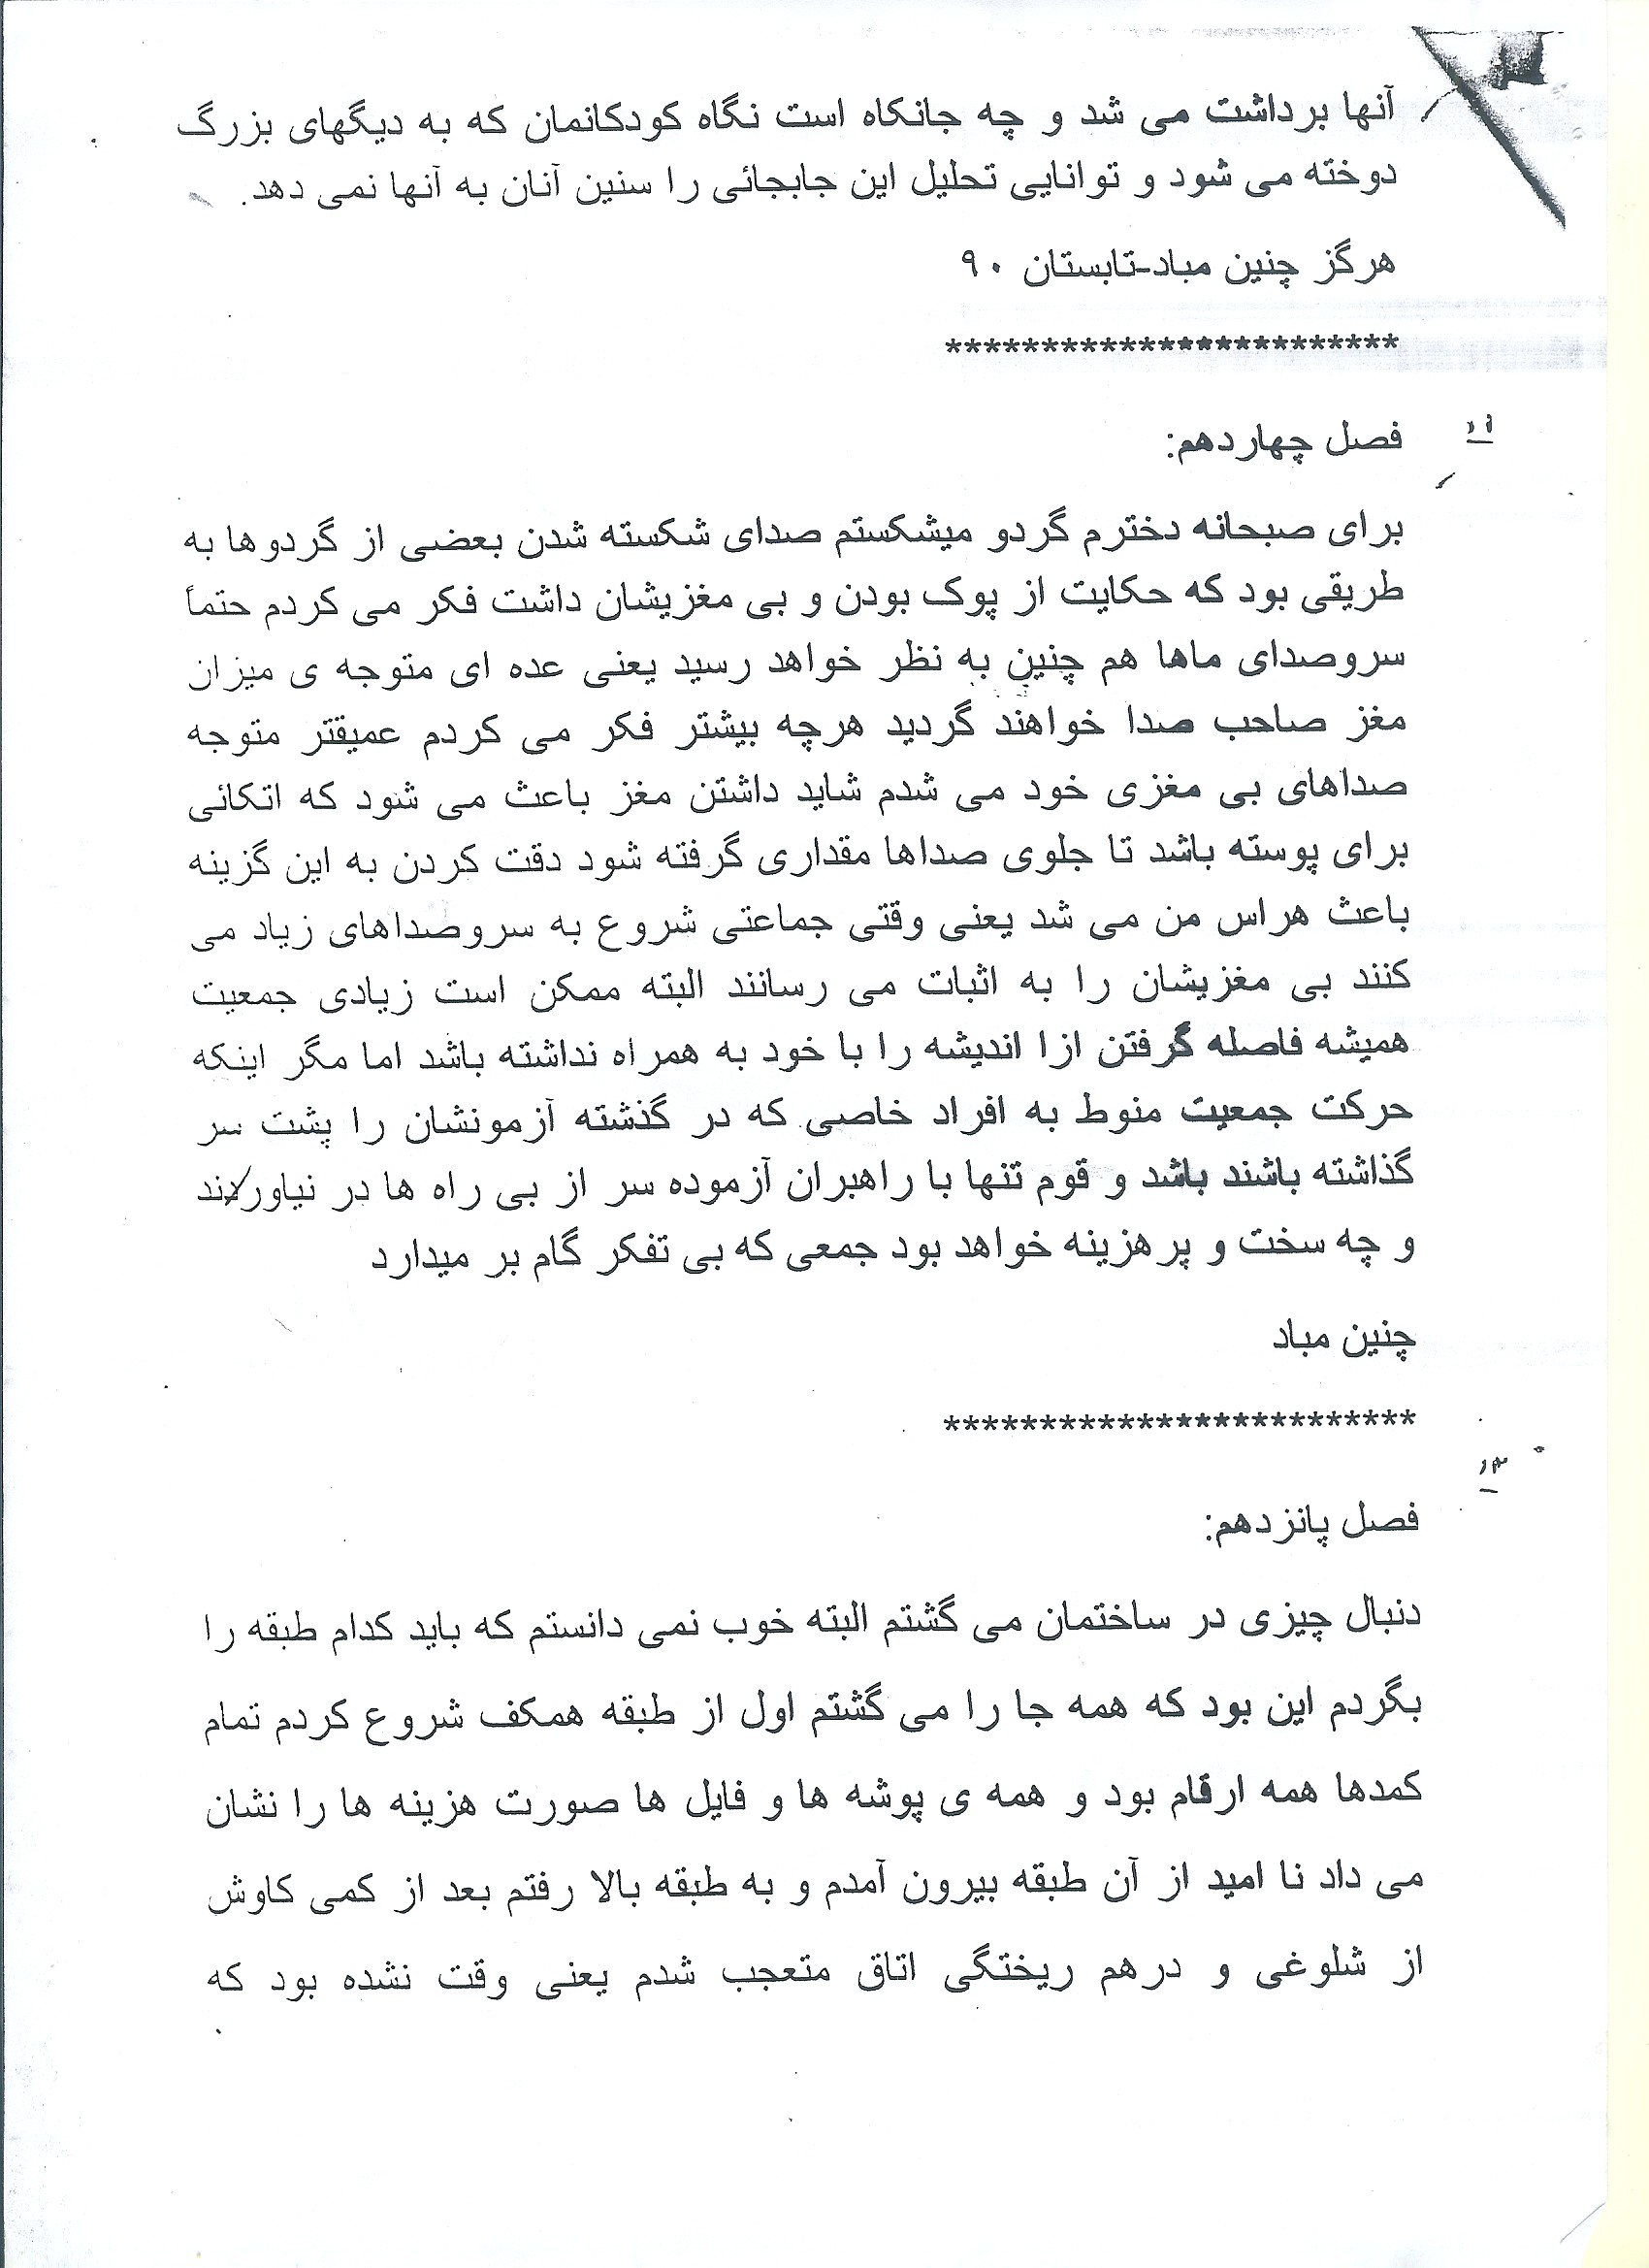 آنها برداشت می شد و چه جانکاه است نگاه کودکانمان که به دیگهای بزرگ
دوخته می شود و توانایی تحلیل این جابجائی را سنین آنان به آنها نمی دهد.
هرگز چنین مباد-تابستان ۹۰
************************
فصل چهاردهم:
برای صبحانه دخترم گردو میشکستم صدای شکسته شدن بعضی از گردوها به
طریقی بود که حکایت از پوک بودن و بی مغزیشان داشت فکر می کردم حتماً
سروصدای ماها هم چنین به نظر خواهد رسید یعنی عده ای متوجه ی میزان
مغز صاحب صدا خواهند گردید هرچه بیشتر فکر می کردم عمیقتر متوجه
صداهای بی مغزی خود می شدم شاید داشتن مغز باعث می شود که اتکائی
برای پوسته باشد تا جلوی صداها مقداری گرفته شود دقت کردن به این گزینه
باعث هراس من می شد یعنی وقتی جماعتی شروع به سروصداهای زیاد می
کنند بی مغزیشان را به اثبات می رسانند البته ممکن است زیادی جمعیت
همیشه فاصله گرفتن ازا اندیشه را با خود به همراه نداشته باشد اما مگر اینکه
حرکت جمعیت منوط به افراد خاصی که در گذشته آزمونشان را پشت سر
گذاشته باشند باشد و قوم تنها با راهبران آزموده سر از بی راه ها در
و چه سخت و پرهزینه خواهد بود جمعی که بی تفکر گام بر میدارد
چنین مباد
*************************
۱۳
فصل پانزدهم:
دنبال چیزی در ساختمان می گشتم البته خوب نمی دانستم که باید کدام طبقه را
بگردم این بود که همه جا را می گشتم اول از طبقه همکف شروع کردم تمام
کمدها همه ارقام بود و همه ی پوشه ها و فایل ها صورت هزینه ها را نشان
می داد نا امید از آن طبقه بیرون آمدم و به طبقه بالا رفتم بعد از کمی کاوش
از شلوغی و درهم ریختگی اتاق متعجب شدم یعنی وقت نشده بود که